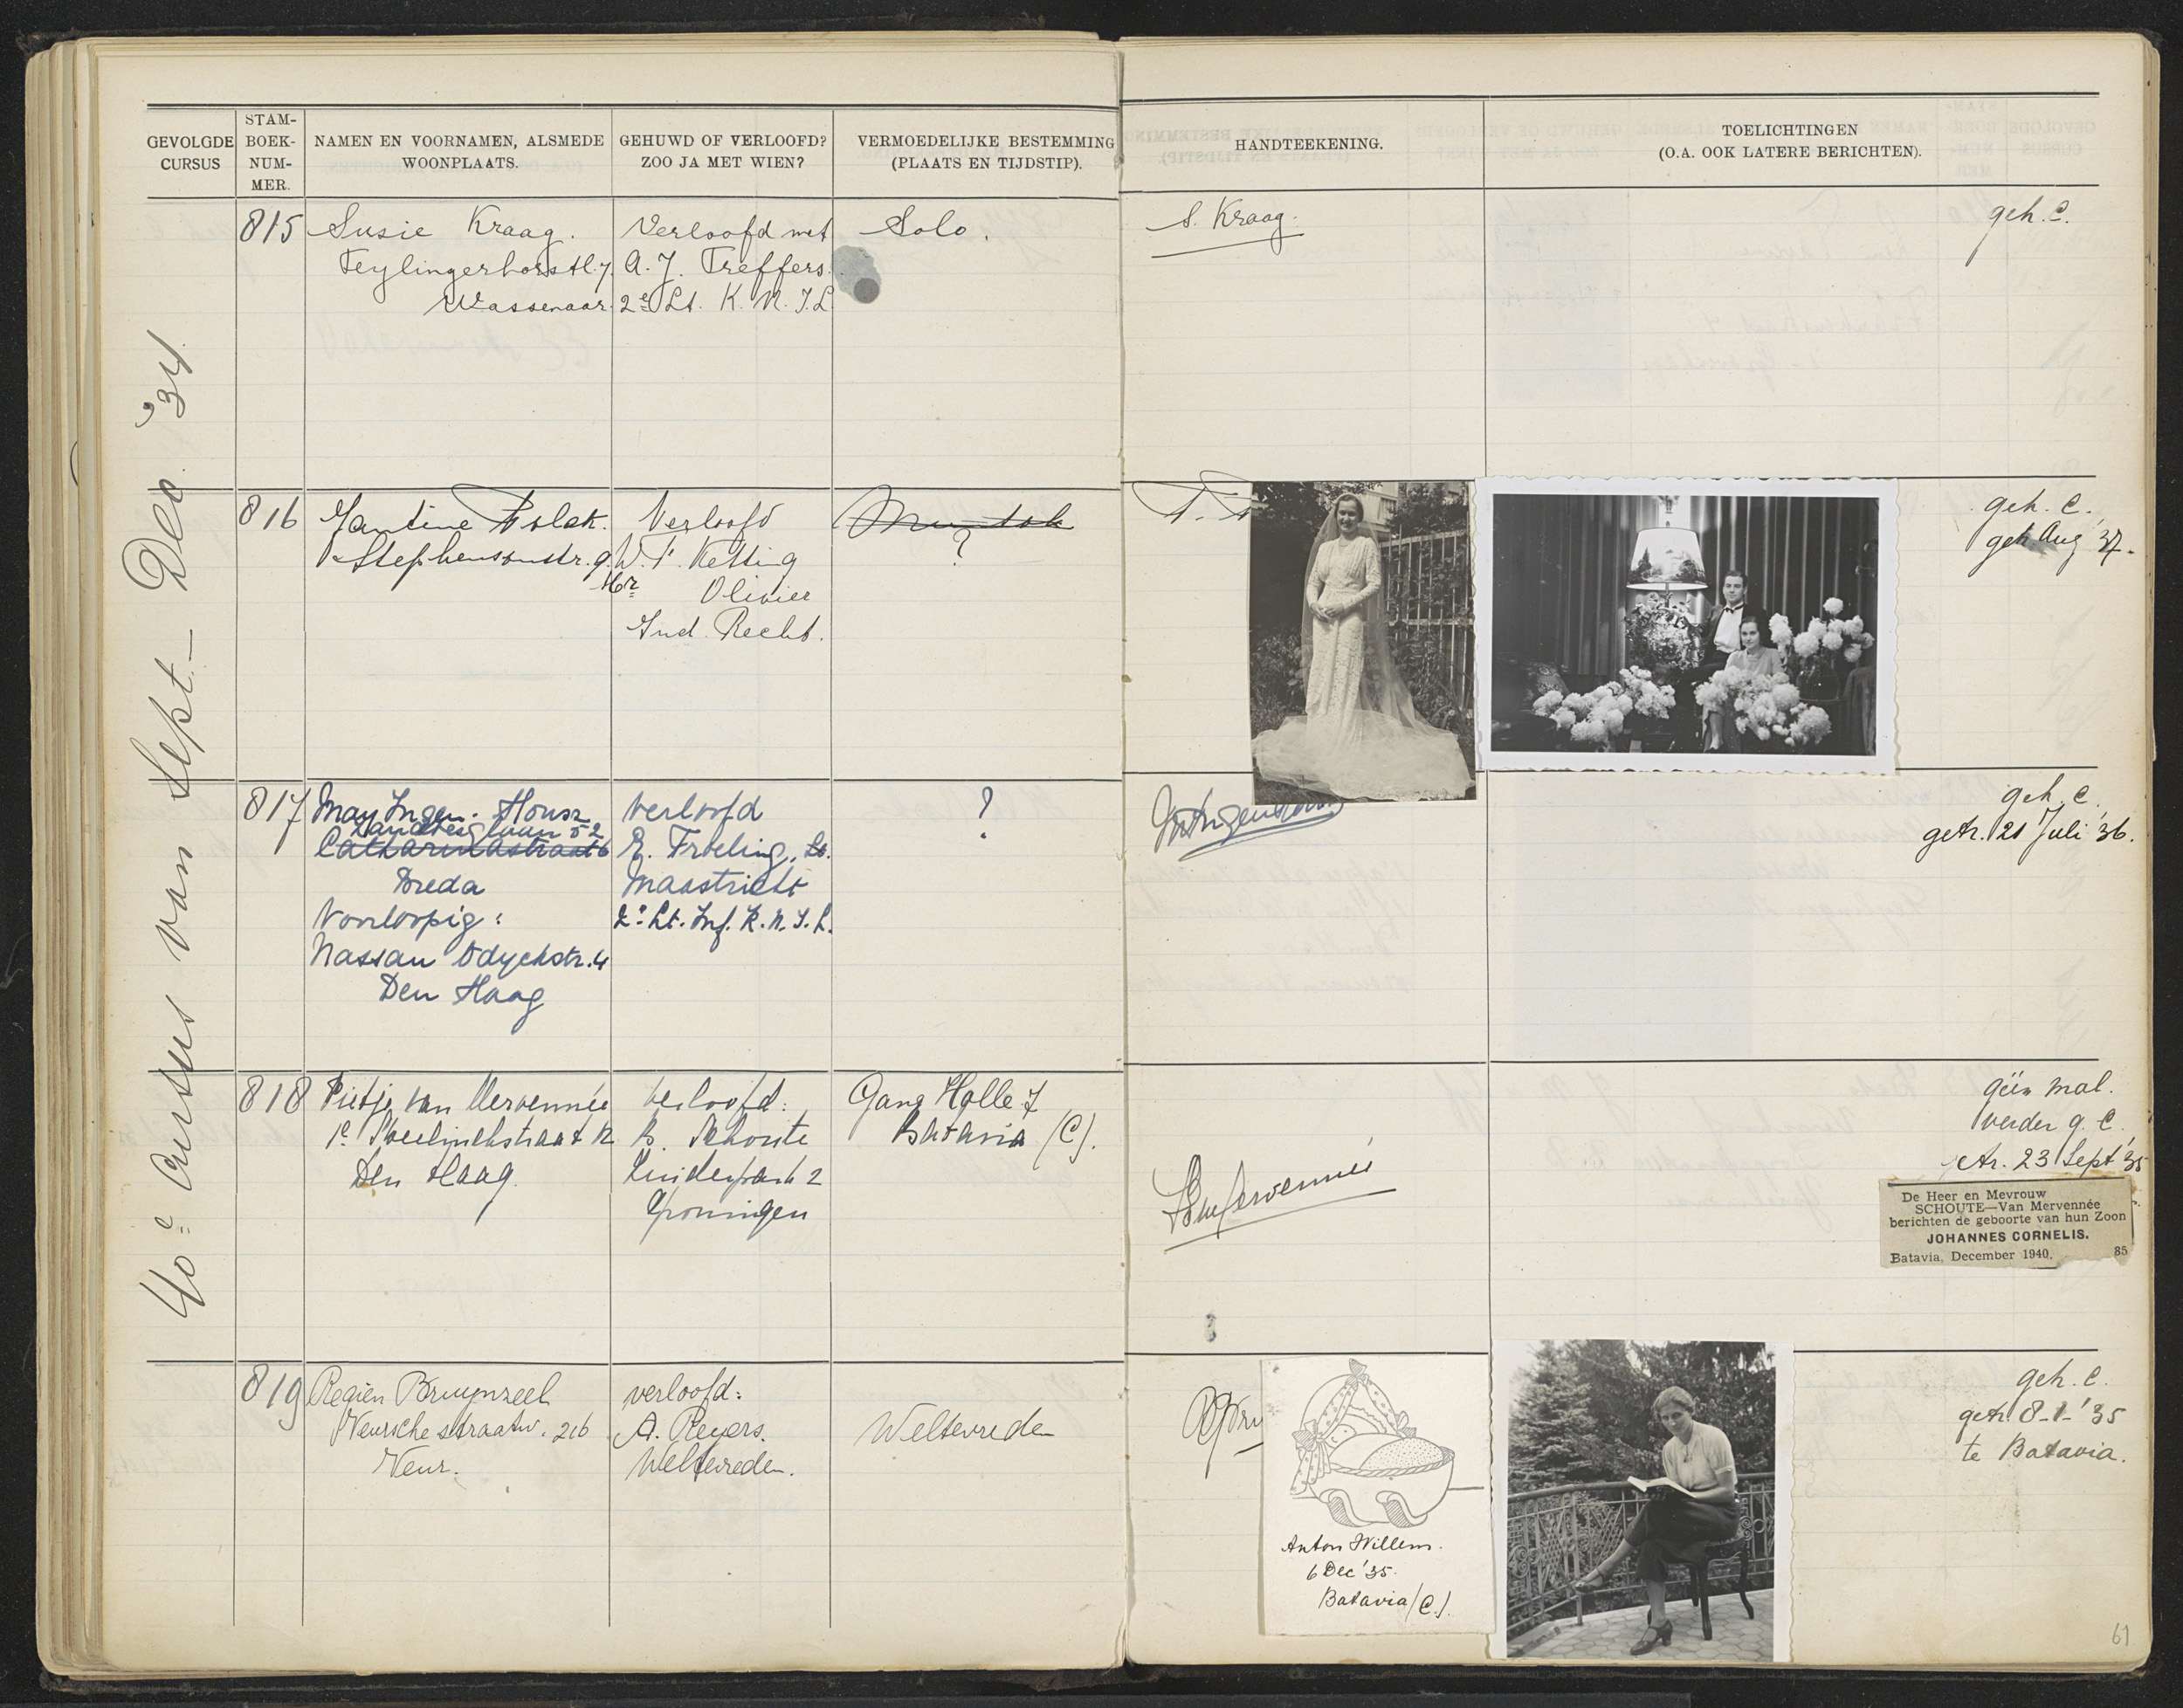 GEVOLGDE CURSUS
STAM-BOEK-NUM-MER.
NAMEN EN VOORNAMEN, ALSMEDE WOONPLAATS.
GEHUWD OF VERLOOFD? ZOO JA MET WIEN?
VERMOEDELIJKE BESTEMMING (PLAATS EN TIJDSTIP).
HANDTEEKENING.
TOELICHTINGEN (O.A. OOK LATERE BERICHTEN).
40e Cursus van Sept. – Dec. '34.
815
Susie Kraag.
Teylingerhorstl. 7.
Wassenaar.
Verloofd met
A. J. Treffers.
2e Lt. K. N. I. L.
Solo.
S. Kraag.
geh. C.
816
Jantine Polak.
Stephensonstr. 9.
Verloofd
W. F. Ketting
Mr Olivier
Ind. Recht.
Muntok
?
geh. C.
geh. Aug '37.
817
May Ingen-Housz
Zandberglaan 52
Catharinastraat 6
Breda
Voorloopig:
Nassau Odyckstr. 4
Den Haag
verloofd
E. Froeling, Lt.
Maastricht
2e Lt. Inf. K. N. I. L.
?
geh. C.
getr. 21 Juli '36.
818
Pietje van Mervennée
1e Sweelinckstraat 12
Den Haag.
verloofd:
B. Schoute
Lindenpark 2
Groningen
Gang Holle 7
Batavia (C).
één mal.
verder g. C.
getr. 23 Sept '35
De Heer en Mevrouw
SCHOUTE—Van Mervennée
berichten de geboorte van hun Zoon
JOHANNES CORNELIS.
Batavia, December 1940. 85
819
Regien Bruynzeel
Velsche straatw. 216
Velsr.
verloofd:
A. Reyers.
Weltevreden.
Weltevreden
Anton Willem.
6 Dec '35.
Batavia (C.).
geh. C.
getr. 8-1-'35
te Batavia.
61